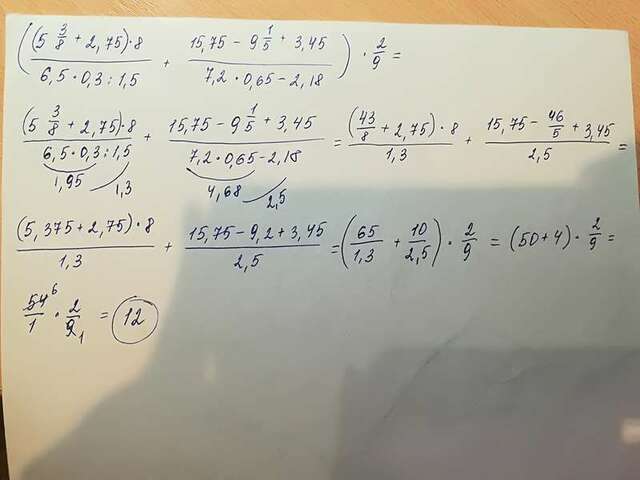 ((5 3/8 + 2,75)·8 / 6,5·0,3:1,5 + 15,75 − 9 1/5 + 3,45 / 7,2·0,65 − 2,18) · 2/9 =
(5 3/8 + 2,75)·8 / 6,5·0,3:1,5 + 15,75 − 9 1/5 + 3,45 / 7,2·0,65 − 2,18 = (43/8 + 2,75)·8 / 1,3 + 15,75 − 46/5 + 3,45 / 2,5 =
1,95 1,3 4,68 2,5
(5,375 + 2,75)·8 / 1,3 + 15,75 − 9,2 + 3,45 / 2,5 = (65/1,3 + 10/2,5) · 2/9 = (50+4) · 2/9 =
54 6 / 1 · 2/9 1 = 12